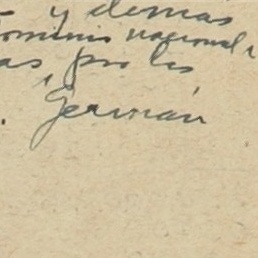 y demas
nacional
as por los
Germán